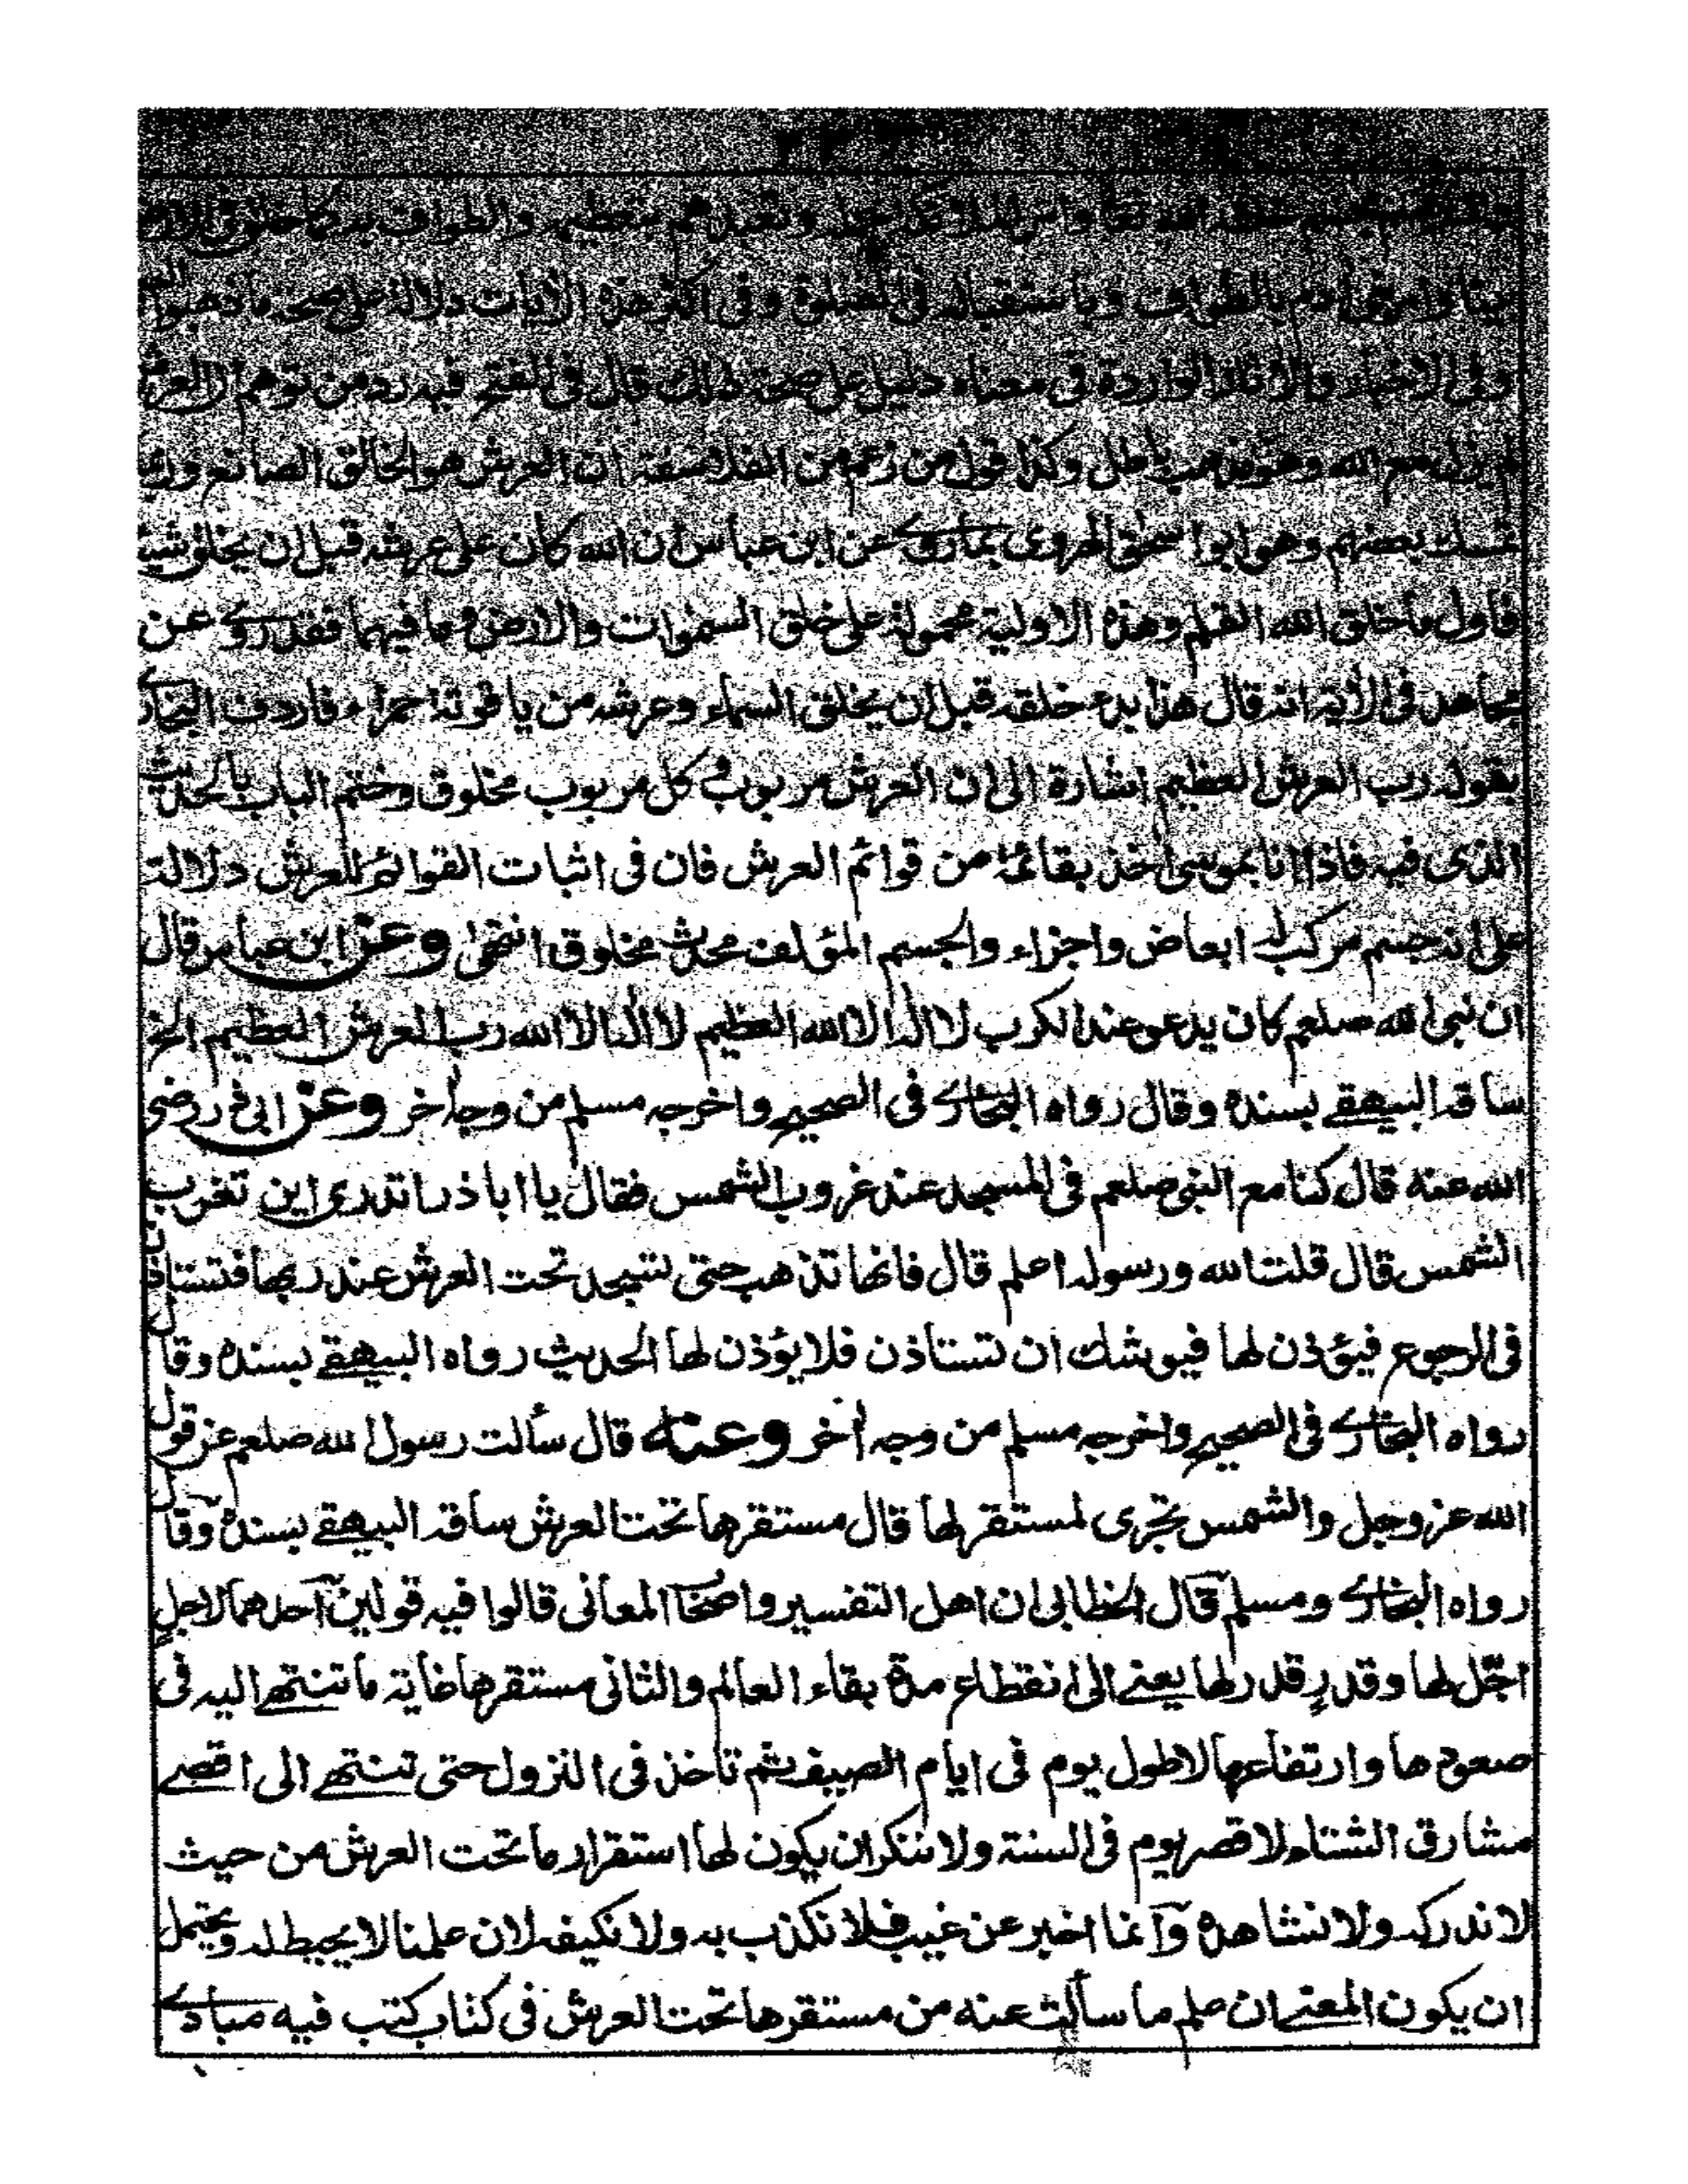 خلقه الله تعا وامر ملائكته بحمله وتعبدهم بتعظيمه والطواف به كما خلق فى الارض
بيتا وامر بنى ادم بالطواف وباستقباله فى الصلوة وفى اكثر هذه الأيات دلالة على صحة ما ذهبوا اليه
وفى الاخبار والأثار الواردة فى معناه دليل على صحة ذلك قال فى الفتح فيه رد من توهم ان العرش
لم يزل مع الله وهو مذهب باطل وكذا قول من زعم من الفلاسفة ان العرش هو الخالق الصانع وانما
تمسك بعضهم وهو ابو اسحق الهروى بما روى عن ابن عباس ان الله كان على عرشه قبل ان يخلق شيئا
فاول ما خلق الله القلم وهذه الاولية محمولة على خلق السموات والارض وما فيهما فقد روى عن
مجاهد فى الأية انه قال هذا بدء خلقه قبل ان يخلق السماء وعرشه من ياقوتة حمراء فاردف البخارى
بقوله رب العرش العظيم اشارة الى ان العرش مربوب وكل مربوب مخلوق وختم الباب بالحديث
الذى فيه فاذا انا بموسى أخذ بقائمة من قوائم العرش فان فى اثبات القوائم للعرش دلالة
على انه جسم مركب له ابعاض واجزاء والجسم المؤلف محدث مخلوق انتهى وعن ابن عباس قال
ان نبى الله صلعم كان يدعو عند الكرب لا اله الا الله العظيم لا اله الا الله رب العرش العظيم الخ
ساقه البيهقے بسنده وقال رواه البخارى فى الصحيح واخرجه مسلم من وجه أخر وعن ابى ذر رضى
الله عنه قال كنا مع النبى صلعم فى المسجد عند غروب الشمس فقال يا ابا ذر اتدرى اين تغرب
الشمس قال قلت الله ورسوله اعلم قال فانها تذهب حتى تسجد تحت العرش عند ربها فتستاذن
فى الرجوع فيؤذن لها فيوشك ان تستاذن فلا يؤذن لها الحديث رواه البيهقے بسنده وقال
رواه البخارے فى الصحيح واخرجه مسلم من وجه أخر وعنه قال سألت رسول الله صلعم عن قول
الله عز وجل والشمس تجرى لمستقر لها قال مستقرها تحت العرش ساقه البيهقے بسنده وقال
رواه البخارے ومسلم قال الخطابى ان اهل التفسير واصحا المعانى قالوا فيه قولين احدهما لاجل
اجّل لها وقدرٍ قدر لها يعنے الى انقطاع مدة بقاء العالم والثانى مستقرها غاية ما تنتهے اليه فى
صعودها وارتفاعها لاطول يوم فى ايام الصيف ثم تاخذ فى النزول حتى تنتهے الى اقصے
مشارق الشتاء لاقصر يوم فى السنة ولا ننكر ان يكون لها استقرار ما تحت العرش من حيث
لا ندركه ولا نشاهده وانما اخبر عن غيب فلا نكذب به ولا نكيفه لان علمنا لا يحيط له ويحتمل
ان يكون المعنے ان علم ما سألت عنه من مستقرها تحت العرش فى كتاب كتب فيه مبادے